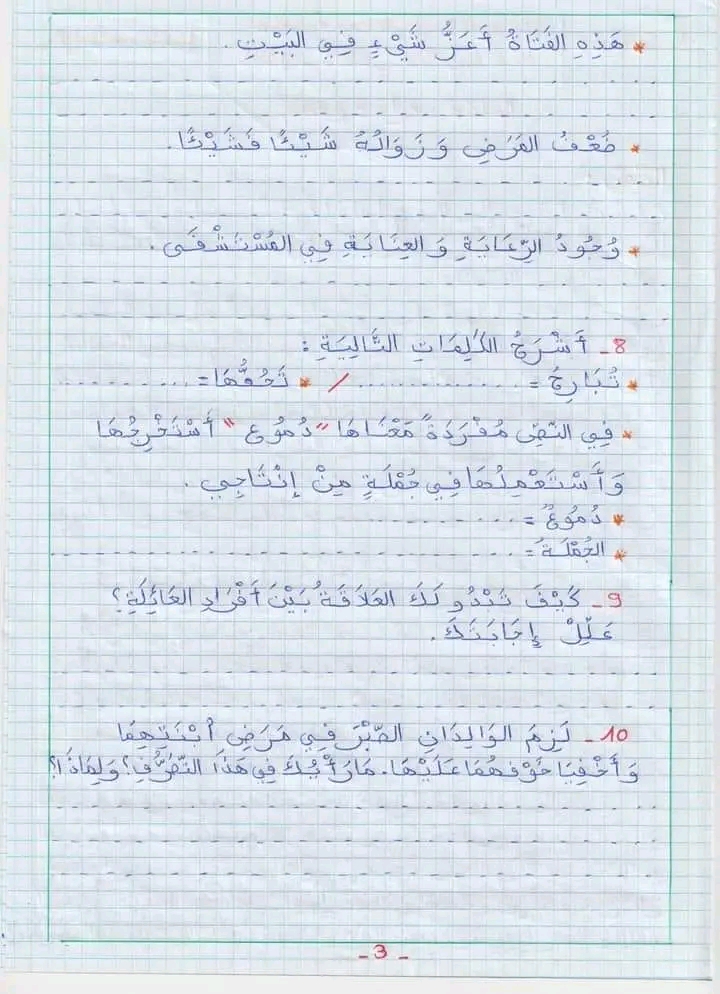 * هَذِهِ الفَتَاةُ أَعَزُّ شَيْءٍ فِي البَيْتِ.
* ضُعْفُ المَرَضِ وَزَوَالُهُ شَيْئًا فَشَيْئًا.
* وُجُودُ الرِّعَايَةِ وَالعِنَايَةِ فِي المُسْتَشْفَى.
8- أَشْرَحُ الكَلِمَاتِ التَّالِيَةِ:
* تُبَارِحُ = ............... / * تَحُفُّهَا = ...............
* فِي النَّصِّ مُفْرَدَةً مَعْنَاهَا "دُمُوع" أَسْتَخْرِجُهَا
وَأَسْتَعْمِلُهَا فِي جُمْلَةٍ مِنْ إِنْتَاجِي.
* دُمُوعٌ = ...............
* الجُمْلَةُ = ...............
9- كَيْفَ تَبْدُو لَكَ العَلَاقَةُ بَيْنَ أَفْرَادِ العَائِلَةِ؟
عَلِّلْ إِجَابَتَكَ.
10- لَزِمَ الوَالِدَانِ الصَّبْرَ فِي مَرَضِ ابْنَتِهِمَا
وَأَخْفِيَا خَوْفَهُمَا عَلَيْهَا. مَا رَأْيُكَ فِي هَذَا التَّصَرُّفِ؟ وَلِمَاذَا؟
- 3 -